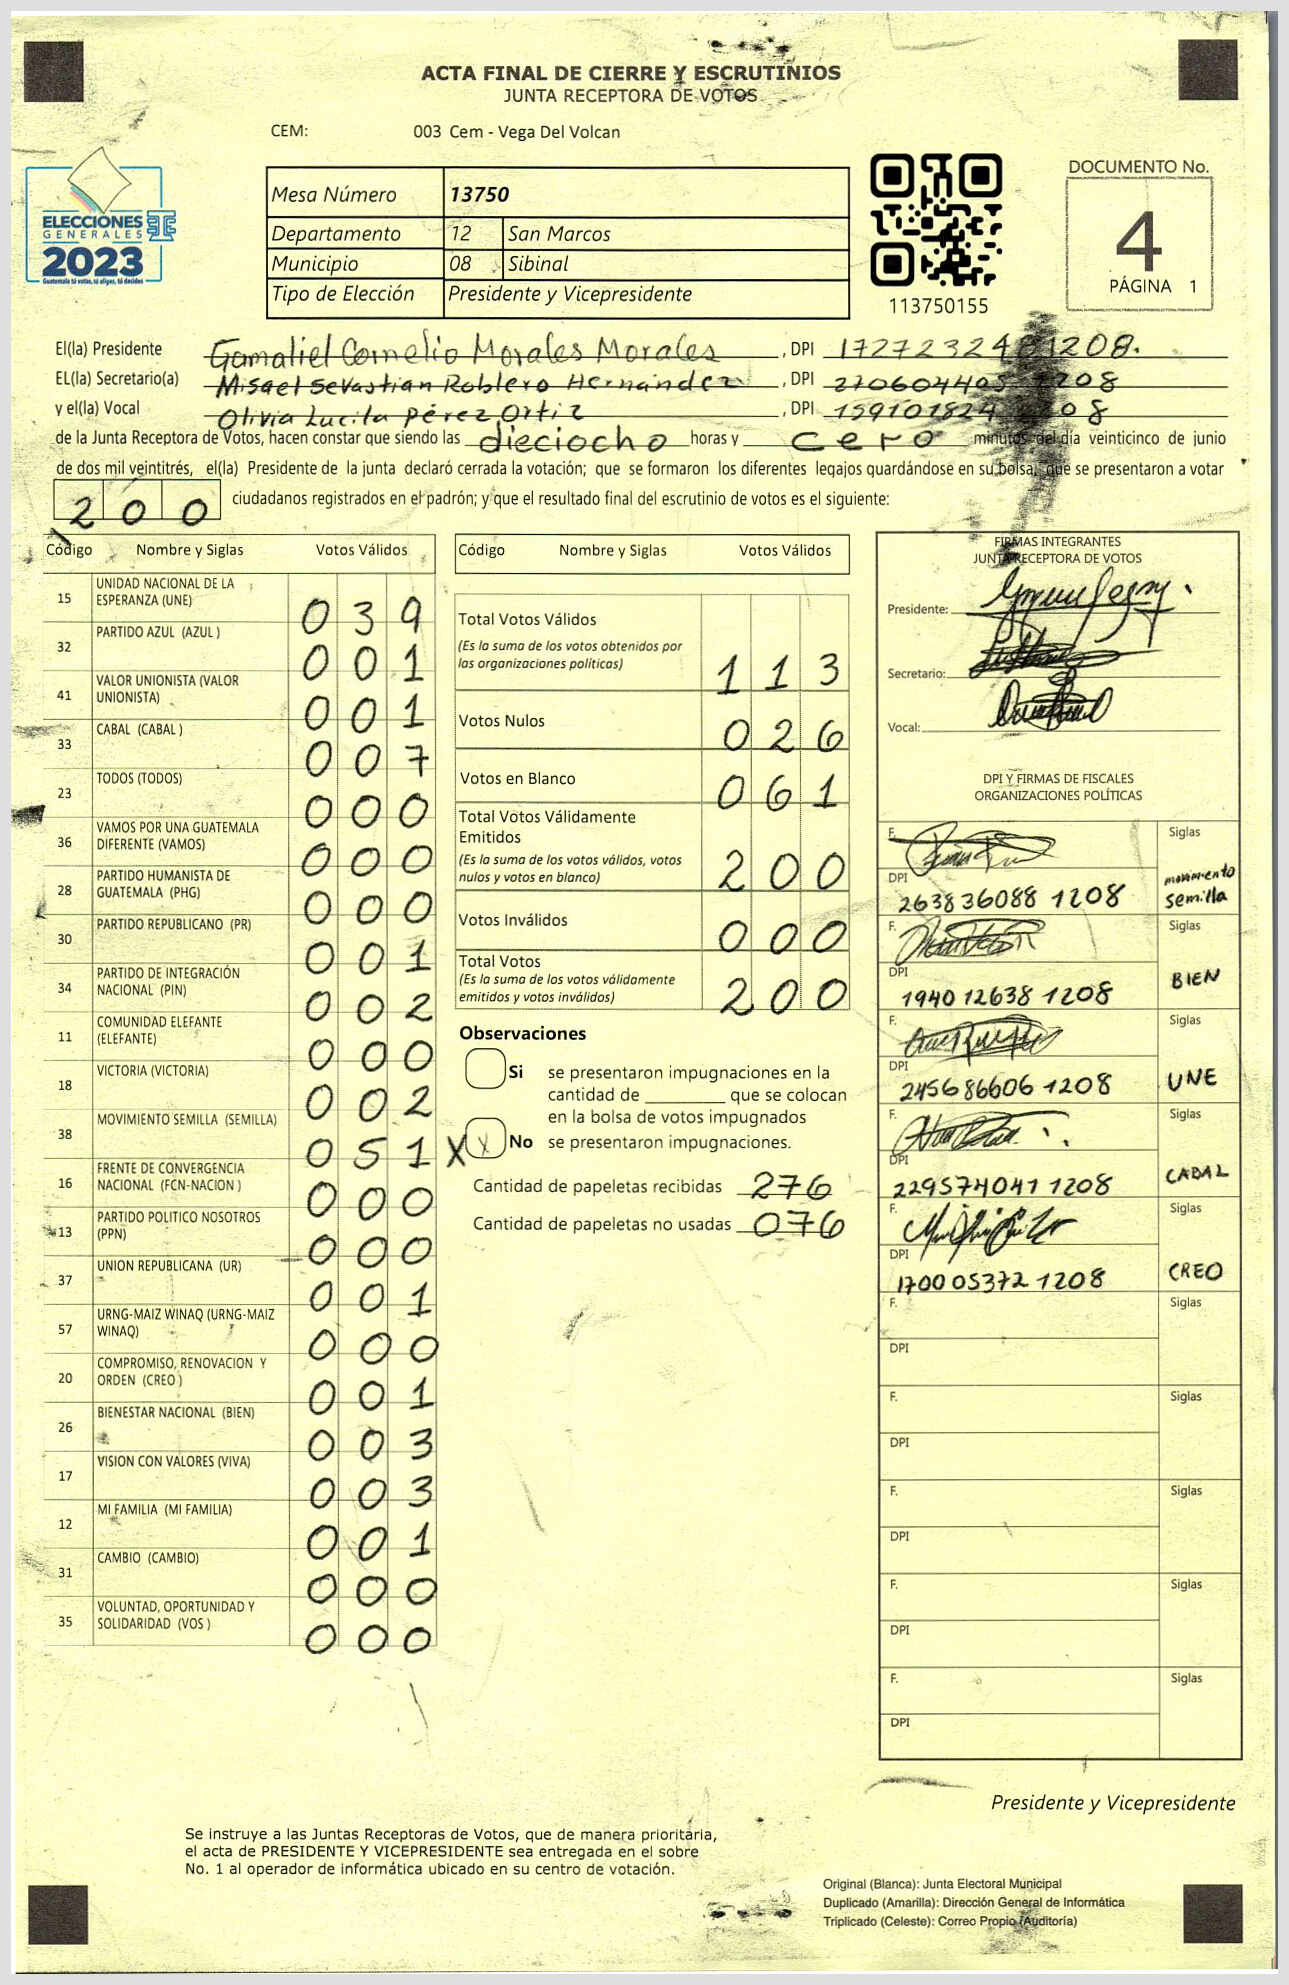 ACTA FINAL DE CIERRE Y ESCRUTINIOS
JUNTA RECEPTORA DE VOTOS
CEM: 003 Cem - Vega Del Volcan
ELECCIONES
GENERALES
2023
Guatemala tú votas, tú eliges, tú decides
Mesa Número 13750
Departamento 12 San Marcos
Municipio 08 Sibinal
Tipo de Elección Presidente y Vicepresidente
113750155
DOCUMENTO No.
4
PÁGINA 1
El(la) Presidente Gamaliel Cornelio Morales Morales, DPI 1727232481208.
EL(la) Secretario(a) Misael Sevastian Roblero Hernández, DPI 270604405 1208
y el(la) Vocal Olivia Lucila Pérez Ortiz, DPI 159101824 1208
de la Junta Receptora de Votos, hacen constar que siendo las dieciocho horas y cero minutos del día veinticinco de junio
de dos mil veintitrés, el(la) Presidente de la junta declaró cerrada la votación; que se formaron los diferentes legajos guardándose en su bolsa, que se presentaron a votar
200 ciudadanos registrados en el padrón; y que el resultado final del escrutinio de votos es el siguiente:
Código Nombre y Siglas Votos Válidos
15 UNIDAD NACIONAL DE LA
ESPERANZA (UNE) 039
32 PARTIDO AZUL (AZUL ) 001
41 VALOR UNIONISTA (VALOR
UNIONISTA) 001
33 CABAL (CABAL ) 007
23 TODOS (TODOS) 000
36 VAMOS POR UNA GUATEMALA
DIFERENTE (VAMOS) 000
28 PARTIDO HUMANISTA DE
GUATEMALA (PHG) 000
30 PARTIDO REPUBLICANO (PR) 001
34 PARTIDO DE INTEGRACIÓN
NACIONAL (PIN) 002
11 COMUNIDAD ELEFANTE
(ELEFANTE) 000
18 VICTORIA (VICTORIA) 002
38 MOVIMIENTO SEMILLA (SEMILLA) 051
16 FRENTE DE CONVERGENCIA
NACIONAL (FCN-NACION ) 000
13 PARTIDO POLITICO NOSOTROS
(PPN) 000
37 UNION REPUBLICANA (UR) 001
57 URNG-MAIZ WINAQ (URNG-MAIZ
WINAQ) 000
20 COMPROMISO, RENOVACION Y
ORDEN (CREO ) 001
26 BIENESTAR NACIONAL (BIEN) 003
17 VISION CON VALORES (VIVA) 003
12 MI FAMILIA (MI FAMILIA) 001
31 CAMBIO (CAMBIO) 000
35 VOLUNTAD, OPORTUNIDAD Y
SOLIDARIDAD (VOS ) 000
Código Nombre y Siglas Votos Válidos
Total Votos Válidos
(Es la suma de los votos obtenidos por
las organizaciones políticas) 113
Votos Nulos 026
Votos en Blanco 061
Total Votos Válidamente
Emitidos
(Es la suma de los votos válidos, votos
nulos y votos en blanco) 200
Votos Inválidos 000
Total Votos
(Es la suma de los votos válidamente
emitidos y votos inválidos) 200
Observaciones
Si se presentaron impugnaciones en la
cantidad de ________ que se colocan
en la bolsa de votos impugnados
X X No se presentaron impugnaciones.
Cantidad de papeletas recibidas 276
Cantidad de papeletas no usadas 076
FIRMAS INTEGRANTES
JUNTA RECEPTORA DE VOTOS
Presidente:
Secretario:
Vocal:
DPI Y FIRMAS DE FISCALES
ORGANIZACIONES POLÍTICAS
F. Siglas
DPI 263836088 1208 movimiento
semilla
F. Siglas
DPI 1940 12638 1208 BIEN
F. Siglas
DPI 245686606 1208 UNE
F. Siglas
DPI 229574041 1208 CABAL
F. Siglas
DPI 170005372 1208 CREO
F. Siglas
DPI
F. Siglas
DPI
F. Siglas
DPI
F. Siglas
DPI
F. Siglas
DPI
Presidente y Vicepresidente
Se instruye a las Juntas Receptoras de Votos, que de manera prioritaria,
el acta de PRESIDENTE Y VICEPRESIDENTE sea entregada en el sobre
No. 1 al operador de informática ubicado en su centro de votación.
Original (Blanca): Junta Electoral Municipal
Duplicado (Amarilla): Dirección General de Informática
Triplicado (Celeste): Correo Propio (Auditoría)